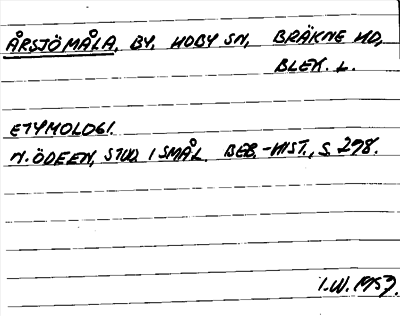 ÅRSJÖMÅLA, BY, HOBY SN, BRÄKNE HD,
BLEK. L.
ETYMOLOGI.
N. ÖDEEN, STUD. I SMÅL. BEB.-HIST., S. 298.
I.W. 1957.